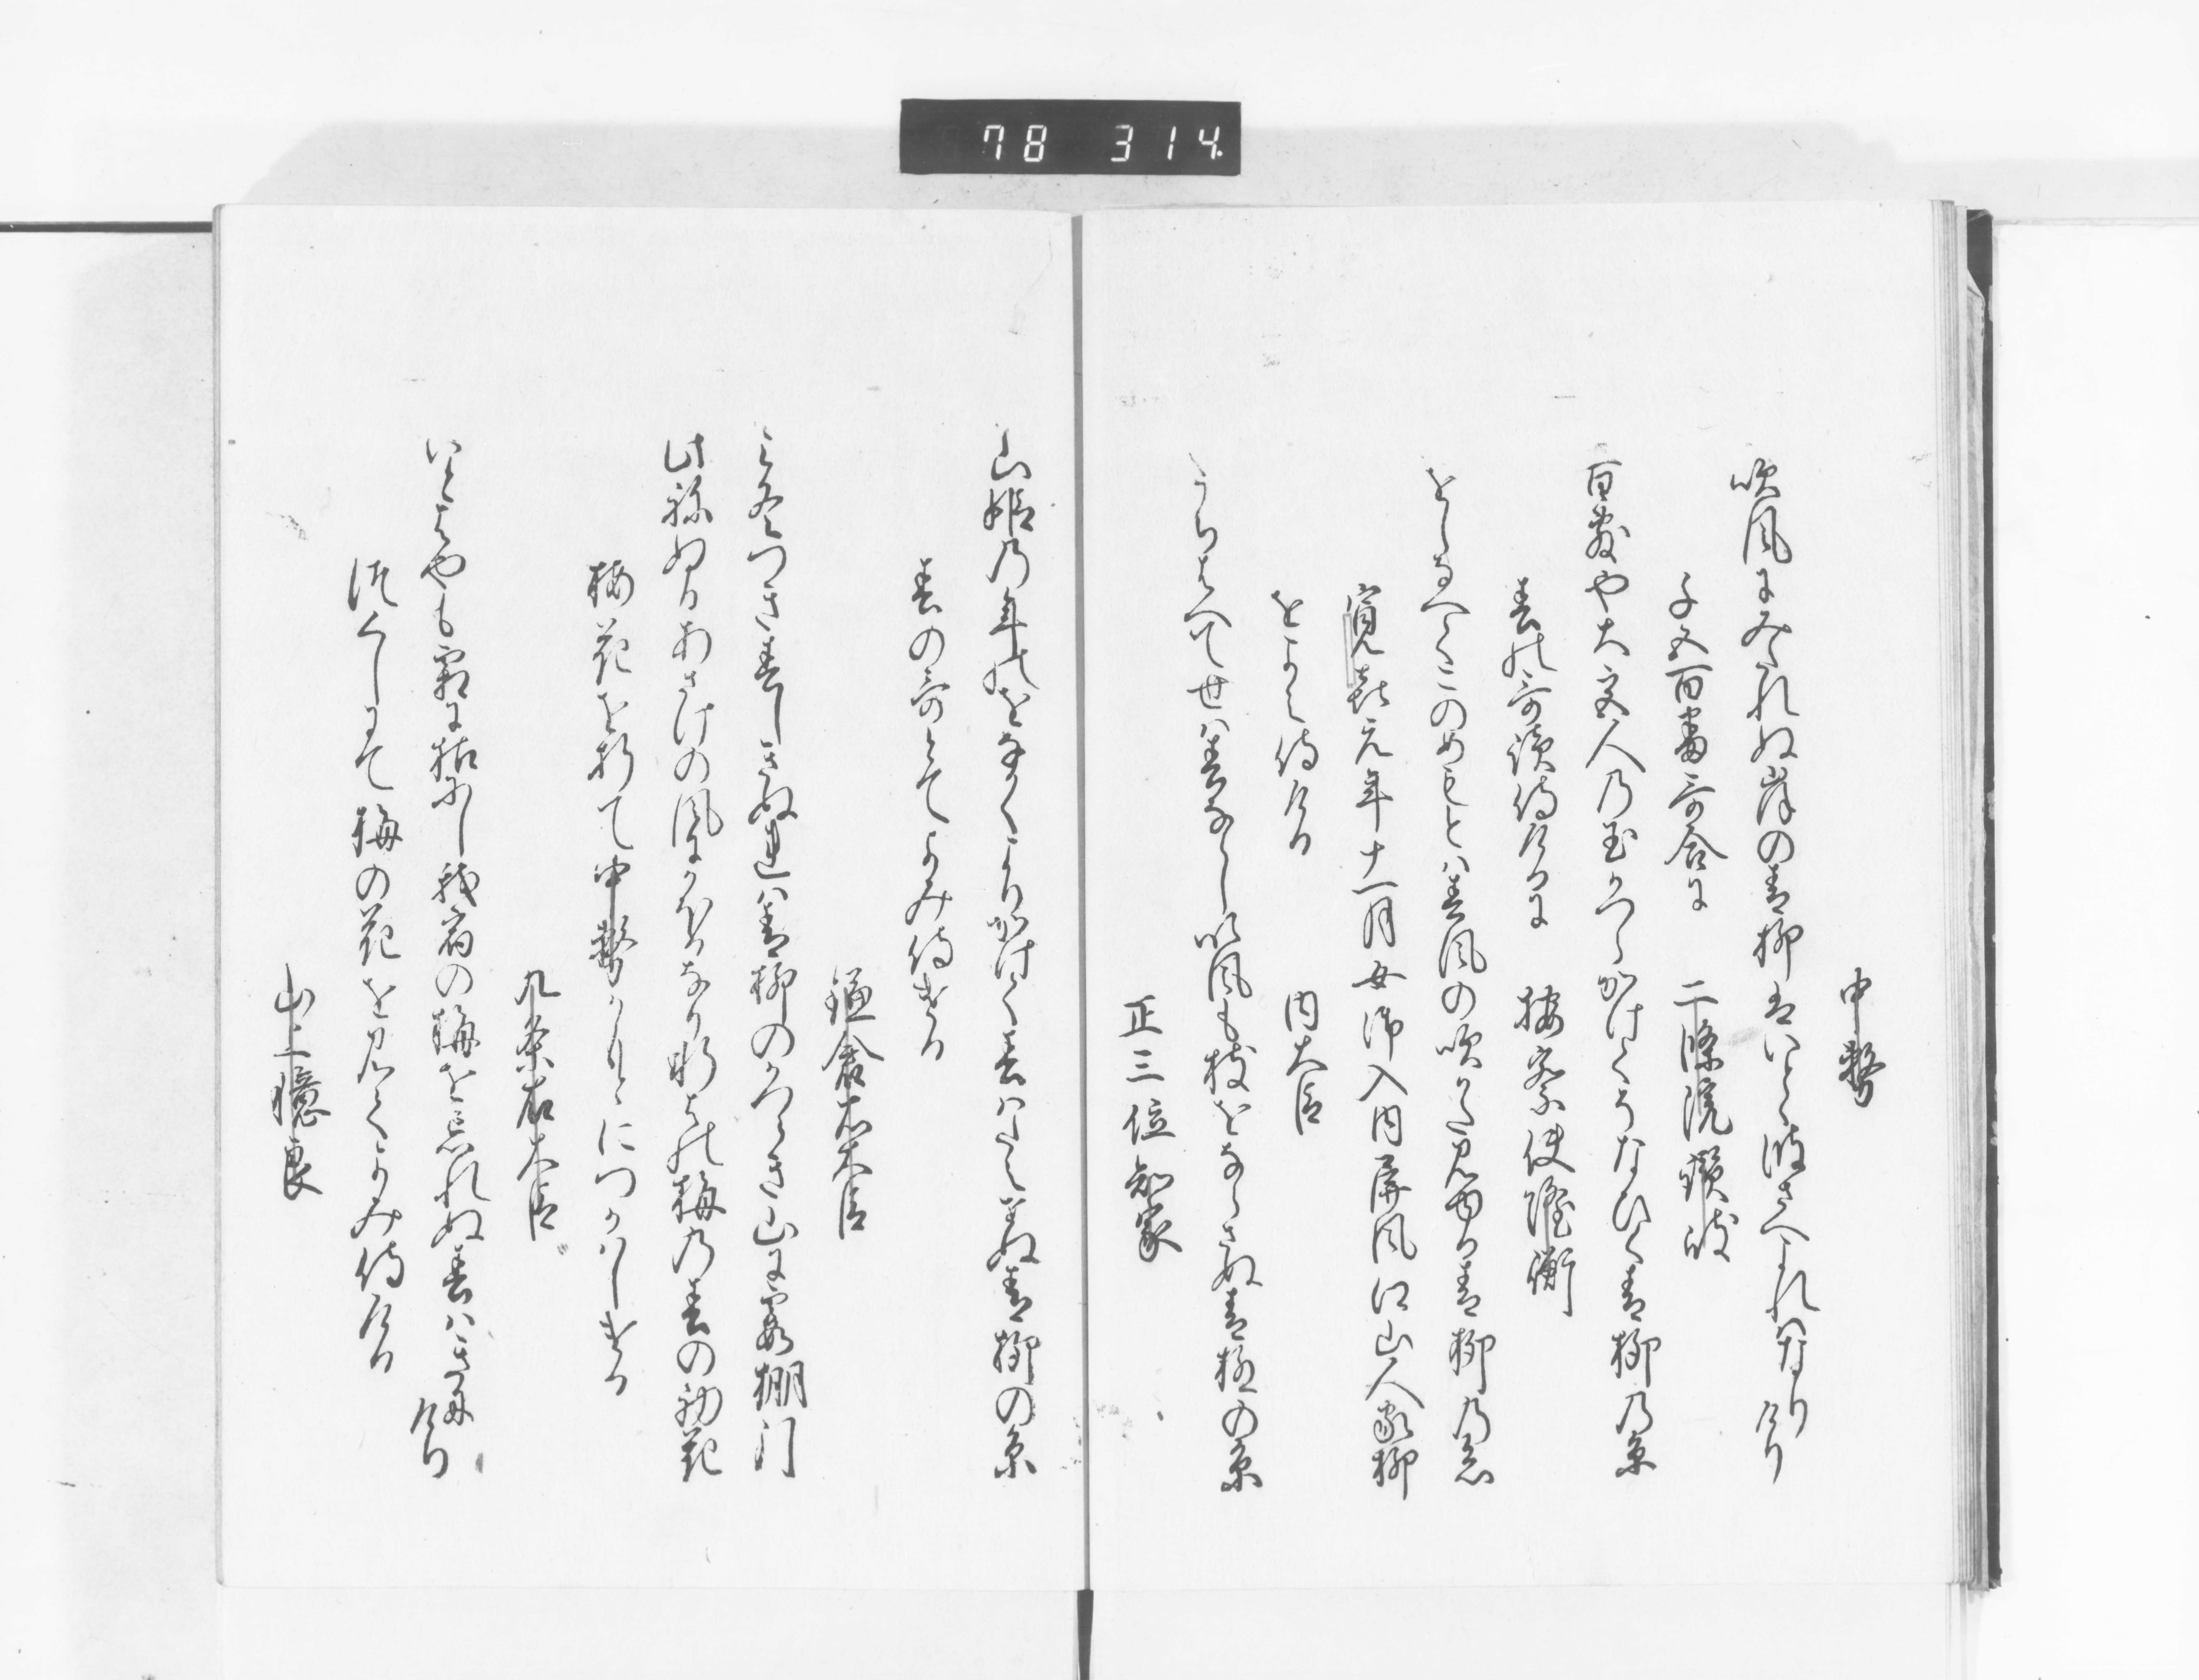 78 314.
中務
吹風にみたれぬ岸の青柳はいとゝ波さへよれはなりけり
千五百番哥合に　二條院讃岐
百敷や大宮人の玉かつらかけてそなひく青柳の糸
春の哥讀侍けるに　按察使隆衡
をしなへてこのめも
とは春風の吹かたみゆる青柳の糸
寛喜元年十一月女御入内屏風江山人家柳
をよみ侍ける　内大臣
うちはへて世は春ならし吹風も枝をならさぬ青柳の糸
正三位知家
山姫の年のをなかくよりかけて春はたえせぬ青柳の糸
春の哥とてよみ侍ける
鎌倉右大臣
み冬つき春しきぬれは青柳のかつらき山に霞棚引
此ねぬるあさけの風にかほるなり軒はの梅の春の初花
梅花を折て中務かもとにつかはしける
九条右大臣
いとはやも霜に枯にし我宿の梅を忘れぬ春はきにけり
つくしにて梅の花を見てよみ侍ける
山上憶良